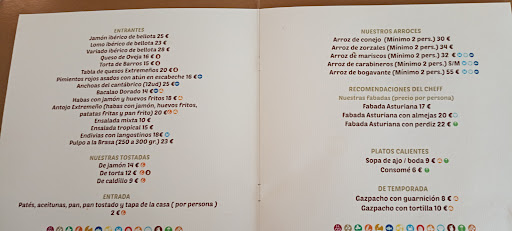 ENTRANTES
Jamón ibérico de bellota 25 €
Lomo ibérico de bellota 23 €
Variado ibérico de bellota 28 €
Queso de Oveja 16 €
Torta de Barros 15 €
Tabla de quesos Extremeños 20 €
Pimientos rojos asados con atún en escabeche 16 €
Anchoas del cantábrico (12ud) 25 €
Bacalao Dorado 14 €
Habas con jamón y huevos fritos 18 €
Antojo Extremeño (habas con jamón, huevos fritos,
patatas fritas y pan frito) 20 €
Ensalada mixta 10 €
Ensalada tropical 15 €
Endivias con langostinos 18 €
Pulpo a la Brasa (250 a 300 gr.) 23 €
NUESTRAS TOSTADAS
De jamón 14 €
De torta 12 €
De caldillo 9 €
ENTRADA
Patés, aceitunas, pan, pan tostado y tapa de la casa ( por persona )
2 €
NUESTROS ARROCES
Arroz de conejo (Mínimo 2 pers.) 30 €
Arroz de zorzales (Mínimo 2 pers.) 34 €
Arroz de mariscos (Mínimo 2 pers.) 32 €
Arroz de carabineros (Mínimo 2 pers.) S/M
Arroz de bogavante (Mínimo 2 pers.) 55 €
RECOMENDACIONES DEL CHEFF
Nuestras fabadas (precio por persona)
Fabada Asturiana 17 €
Fabada Asturiana con almejas 20 €
Fabada Asturiana con perdiz 22 €
PLATOS CALIENTES
Sopa de ajo / boda 9 €
Consomé 6 €
DE TEMPORADA
Gazpacho con guarnición 8 €
Gazpacho con tortilla 10 €